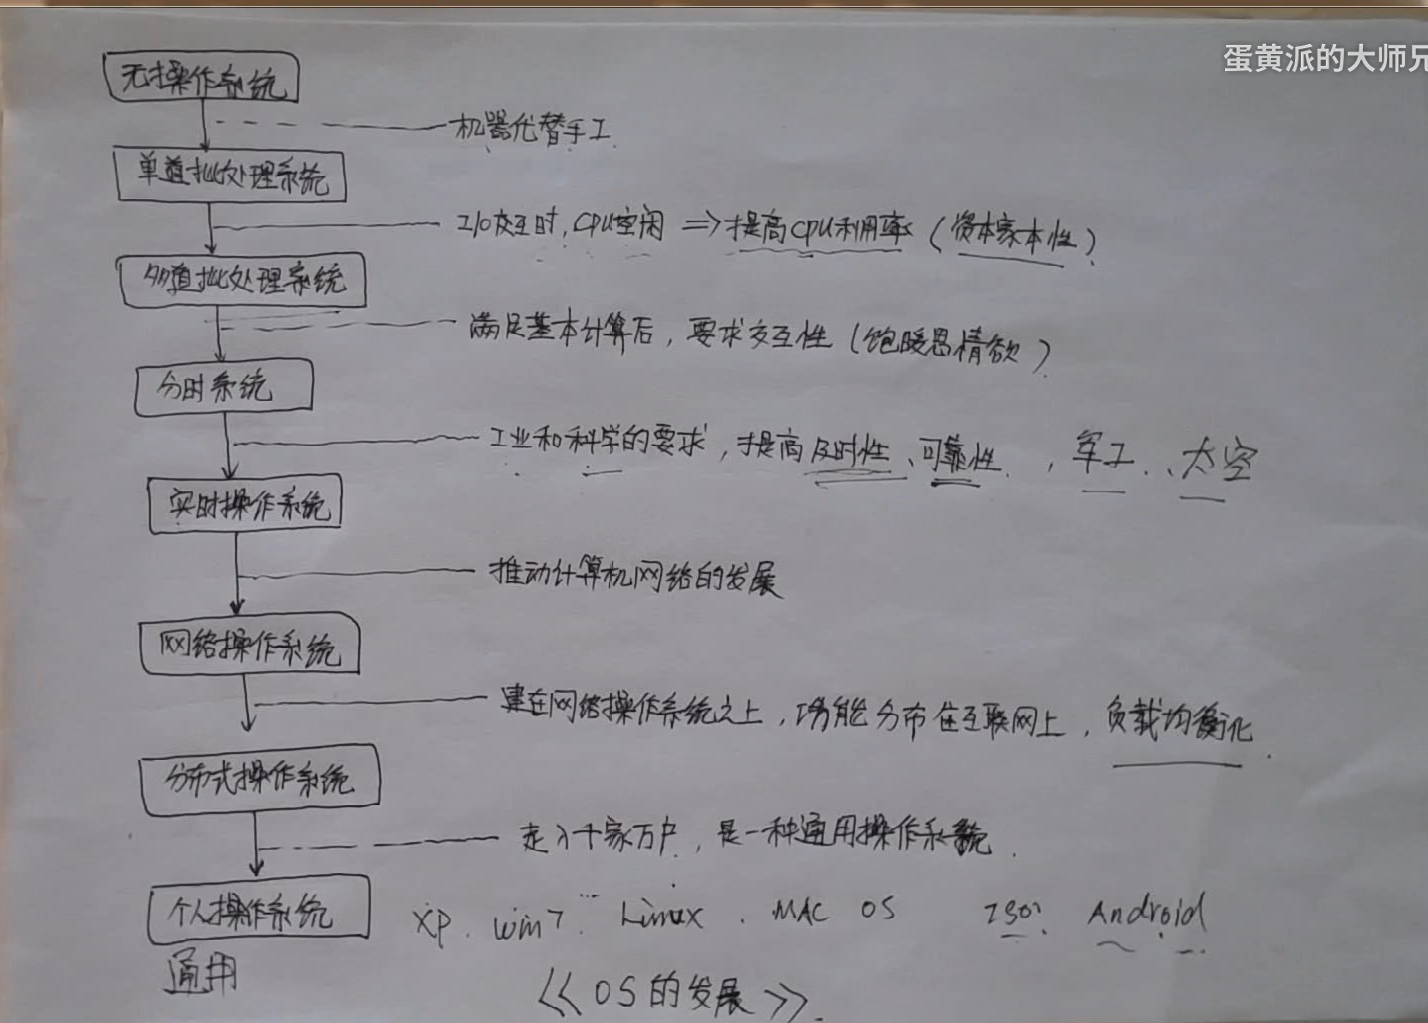 蛋黄派的大师兄
无操作系统
机器代替手工
单道批处理系统
I/O交互时,CPU空闲 => 提高CPU利用率(资本家本性)
多道批处理系统
满足基本计算后,要求交互性(饱暖思情欲)
分时系统
工业和科学的要求,提高及时性、可靠性,军工、太空
实时操作系统
推动计算机网络的发展
网络操作系统
建在网络操作系统之上,功能分布在互联网上,负载均衡化
分布式操作系统
走入千家万户,是一种通用操作系统
个人操作系统 XP. win7. Linux. MAC OS Android
通用
《OS的发展》